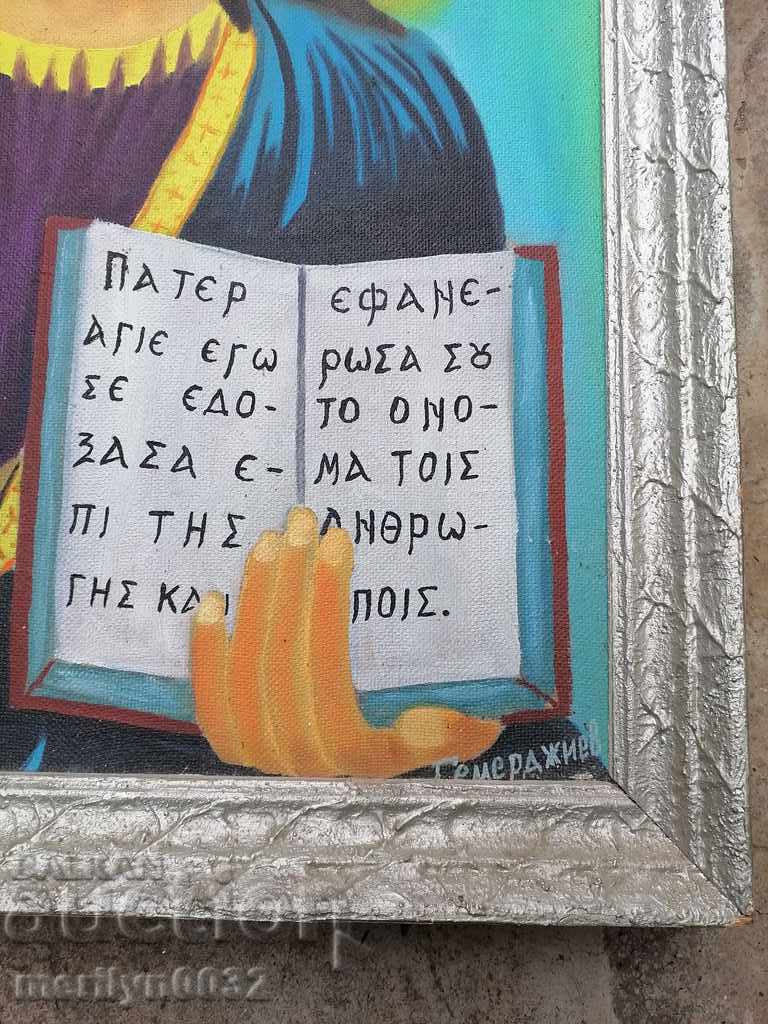 ΠΑΤΕΡ
ΑΓΙΕ ΕΓΩ
ΣΕ ΕΔΟ-
ΞΑΣΑ Ε-
ΠΙ ΤΗΣ
ΓΗΣ ΚΑΙ
ΕΦΑΝΕ-
ΡΩΣΑ ΣȢ
ΤΟ ΟΝΟ-
ΜΑ ΤΟΙΣ
ΑΝΘΡΩ-
ΠΟΙΣ.
Семерджиев
BALKAN
auction
merilyn0032